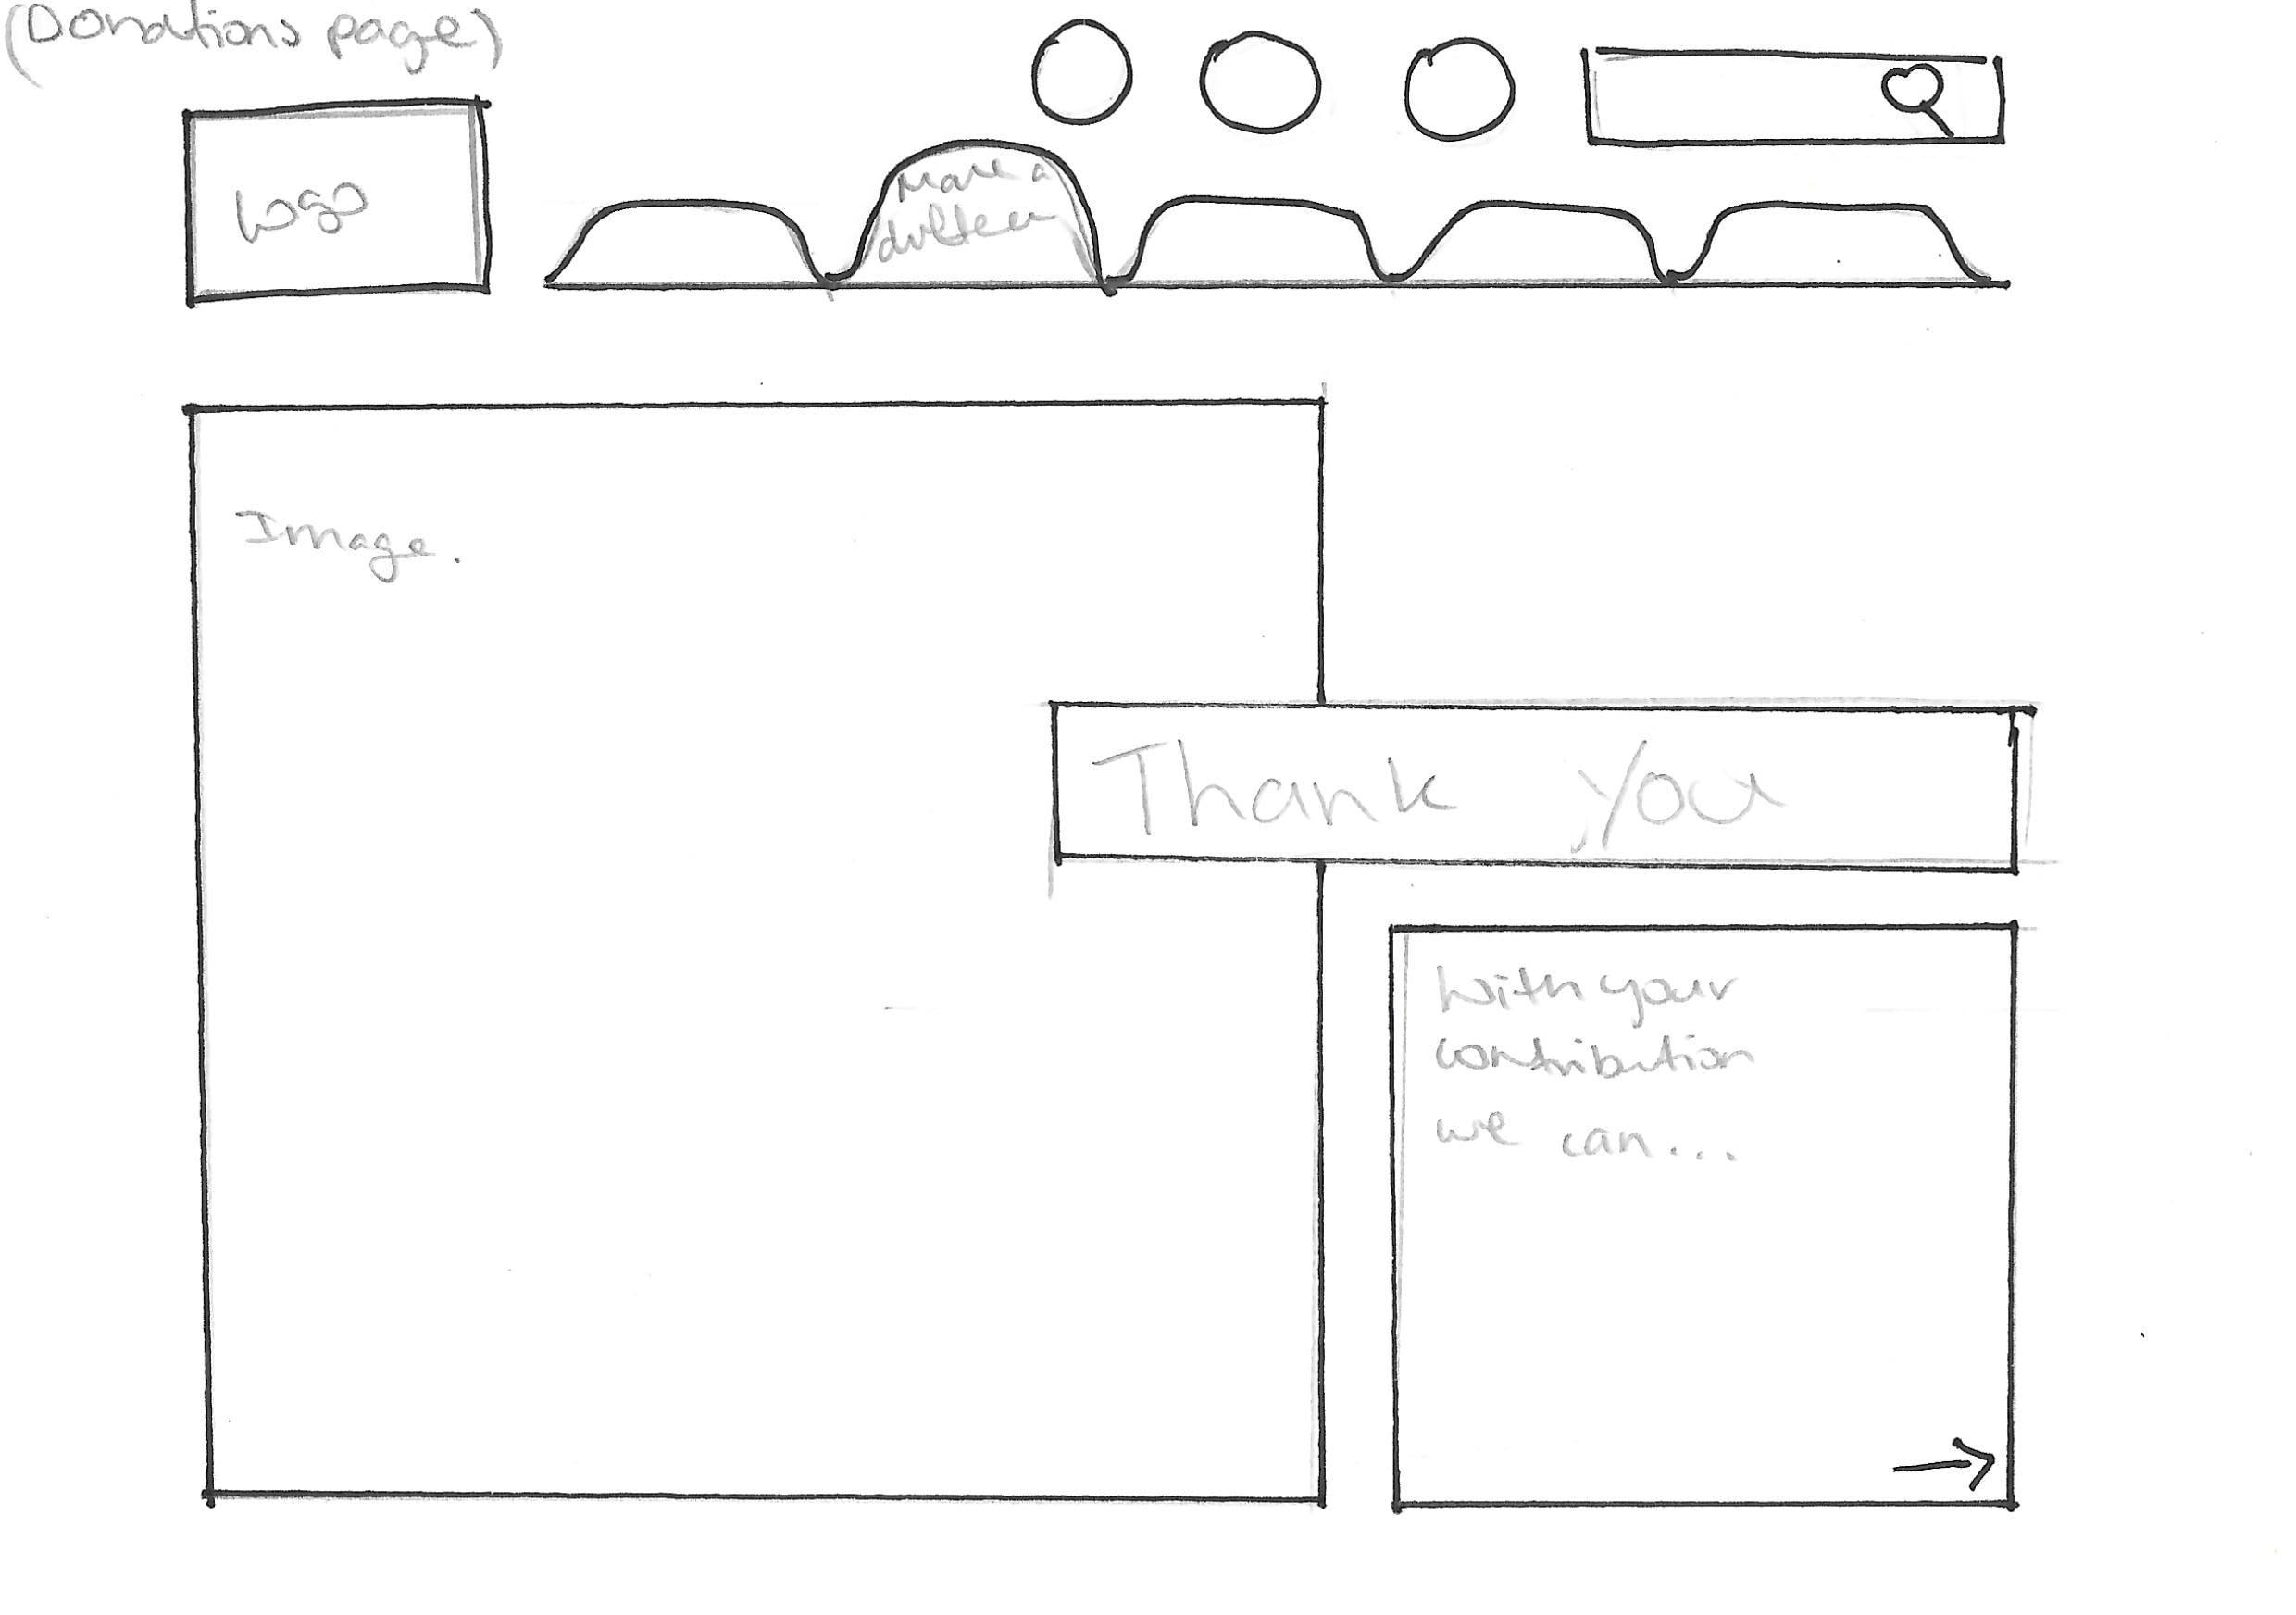 (Donations page)
Logo
Make a
Image.
Thank you
With your
contribution
we can...